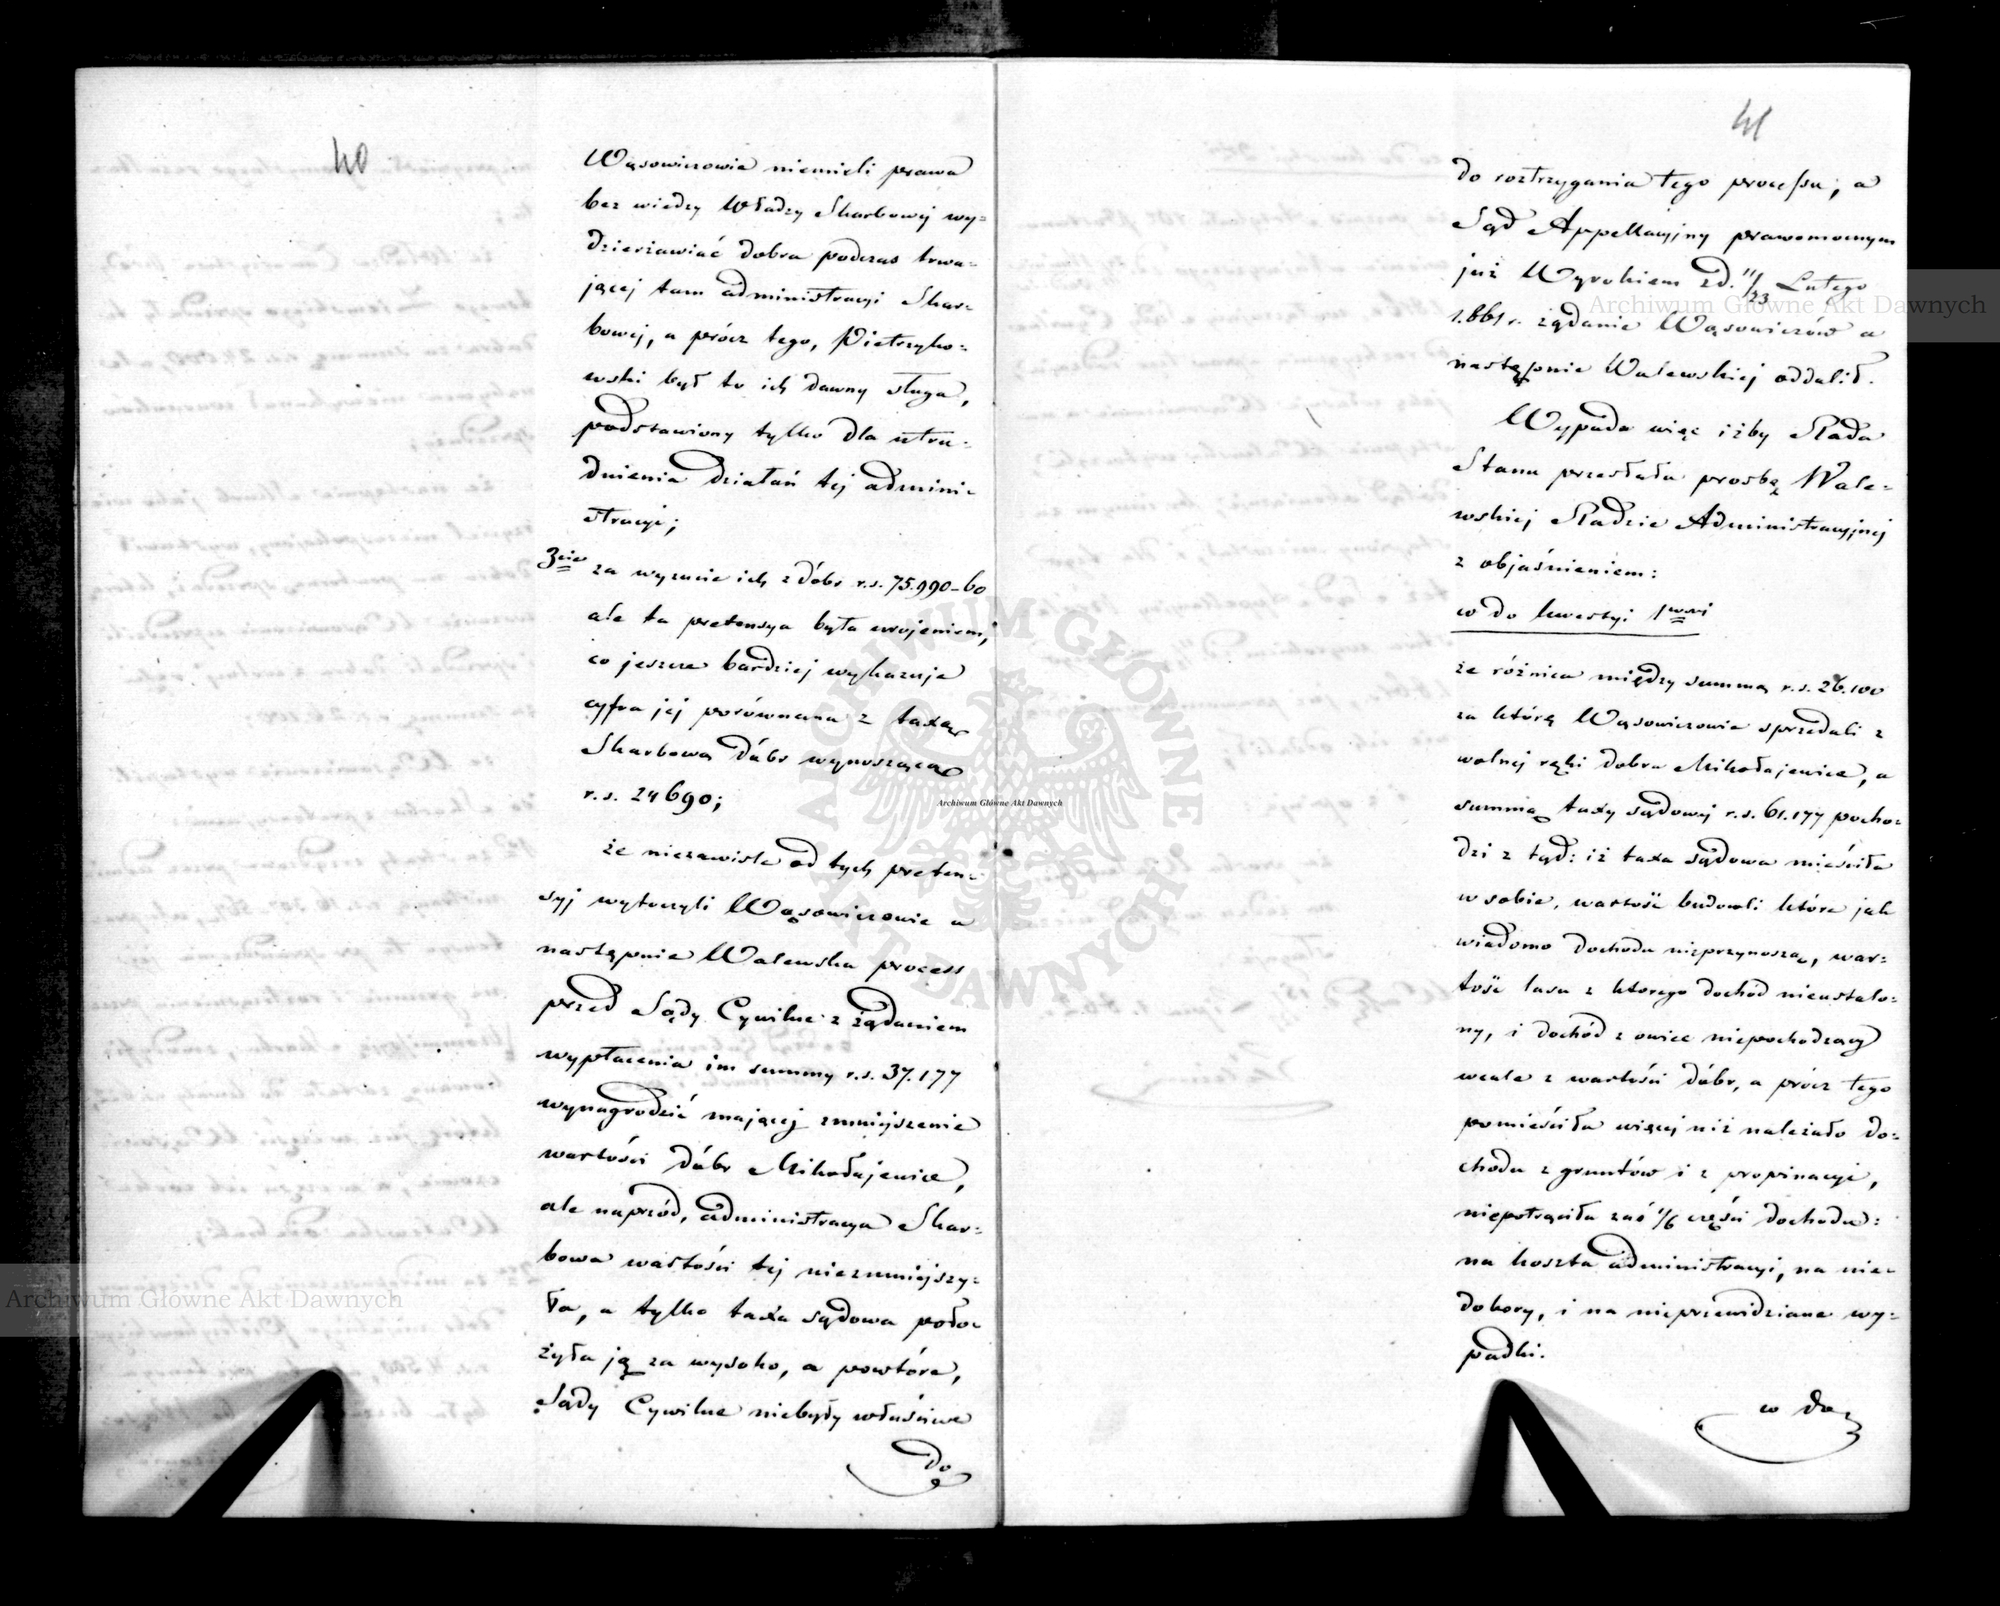 40
Wąsowiczowie niemieli prawa
bez wiedzy Władzy Skarbowej wy=
dzierżawiać dobra podczas trwa=
jącej tam administracyi Skar=
bowej, a prócz tego, Pietrzyko=
wski był to ich dawny sługa,
podstawiony tylko dla utru=
dnienia działań tej admini=
stracyi;
3cie za wyzucie ich z dóbr r.s. 75.990-60
ale ta pretensya była urojeniem,
co jeszcze bardziej wykazuje
cyfra jej porównana z taxą
Skarbową dóbr wynoszącą
r.s. 24690;
że niezawisle od tych preten=
syj wytoczyli Wąsowiczowie a
następnie Walewska process
przed Sądy Cywilne z żądaniem
wypłacenia im summy r.s. 37.177
wynagrodzić mającej zmniejszenie
wartości dóbr Mikołajewice,
ale naprzód, administracya Skar=
bowa wartości tej niezmniejszy=
ła, a tylko taxa sądowa poło=
żyła ją za wysoko, a powtóre,
Sądy Cywilne niebyły właściwe
do
41
do roztrzygania tego processu, a
Sąd Appellacyjny prawomocnym
już Wyrokiem z d. 11/23 Lutego
1.861 r. żądanie Wąsowiczów a
następnie Walewskiej oddalił.
Wypada więc iżby Rada
Stanu przesłała prosbę Wale=
wskiej Radzie Administracyjnej
z objaśnieniem:
co do kwestyi 1wszej
że różnica między summą r.s. 26.100
za którą Wąsowiczowie sprzedali z
wolnej ręki dobra Mikołajewice, a
summą taxy sądowej r.s. 61.177 pocho=
dzi z tąd: iż taxa sądowa mieściła
w sobie, wartość budowli które jak
wiadomo dochodu nieprzynoszą, war=
tość lasu z ktorego dochód nieustalo=
ny, i dochód z owiec niepochodzący
wcale z wartości dóbr, a prócz tego
pomieściła więcej niż należało do=
chodu z gruntów i z propinacyi,
niepotrąciła zaś 1/6 części dochodu:
na koszta administracyi, na nie=
dobory, i na nieprzewidziane wy=
padki.
co do
Archiwum Główne Akt Dawnych
Archiwum Główne Akt Dawnych
Archiwum Główne Akt Dawnych
ARCHIWUM GŁÓWNE AKT DAWNYCH